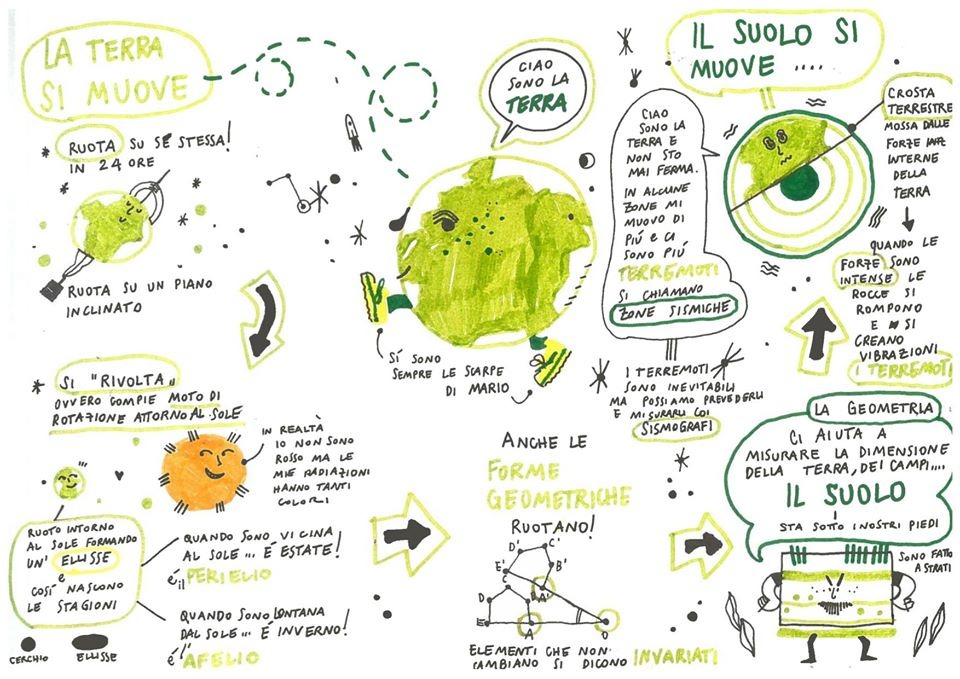 LA TERRA
SI MUOVE
RUOTA SU SÉ STESSA!
IN 24 ORE
RUOTA SU UN PIANO
INCLINATO
CIAO
SONO LA
TERRA
SÌ SONO
SEMPRE LE SCARPE
DI MARIO
IL SUOLO SI
MUOVE ....
CIAO
SONO LA
TERRA E
NON STO
MAI FERMA.
IN ALCUNE
ZONE MI
MUOVO DI
PIÚ E CI
SONO PIÚ
TERREMOTI
SI CHIAMANO
ZONE SISMICHE
CROSTA
TERRESTRE
MOSSA DALLE
FORZE
INTERNE
DELLA
TERRA
QUANDO LE
FORZE SONO
INTENSE LE
ROCCE SI
ROMPONO
E SI
CREANO
VIBRAZIONI
I TERREMOTI
I TERREMOTI
SONO INEVITABILI
MA POSSIAMO PREVEDERLI
E MISURARLI COI
SISMOGRAFI
SI "RIVOLTA"
OVVERO COMPIE MOTO DI
ROTAZIONE ATTORNO AL SOLE
IN REALTÀ
IO NON SONO
ROSSO MA LE
MIE RADIAZIONI
HANNO TANTI
COLORI
RUOTO INTORNO
AL SOLE FORMANDO
UN' ELLISSE
E
COSÍ NASCONO
LE STAGIONI
CERCHIO
ELLISSE
QUANDO SONO VICINA
AL SOLE ... É ESTATE!
é il PERIELIO
QUANDO SONO LONTANA
DAL SOLE ... É INVERNO!
é l' AFELIO
ANCHE LE
FORME
GEOMETRICHE
RUOTANO!
D' C'
E' B'
C B A'
D
E A O
ELEMENTI CHE NON
CAMBIANO SI DICONO INVARIATI
LA GEOMETRIA
CI AIUTA A
MISURARE LA DIMENSIONE
DELLA TERRA, DEI CAMPI....
IL SUOLO
STA SOTTO I NOSTRI PIEDI
SONO FATTO
A STRATI